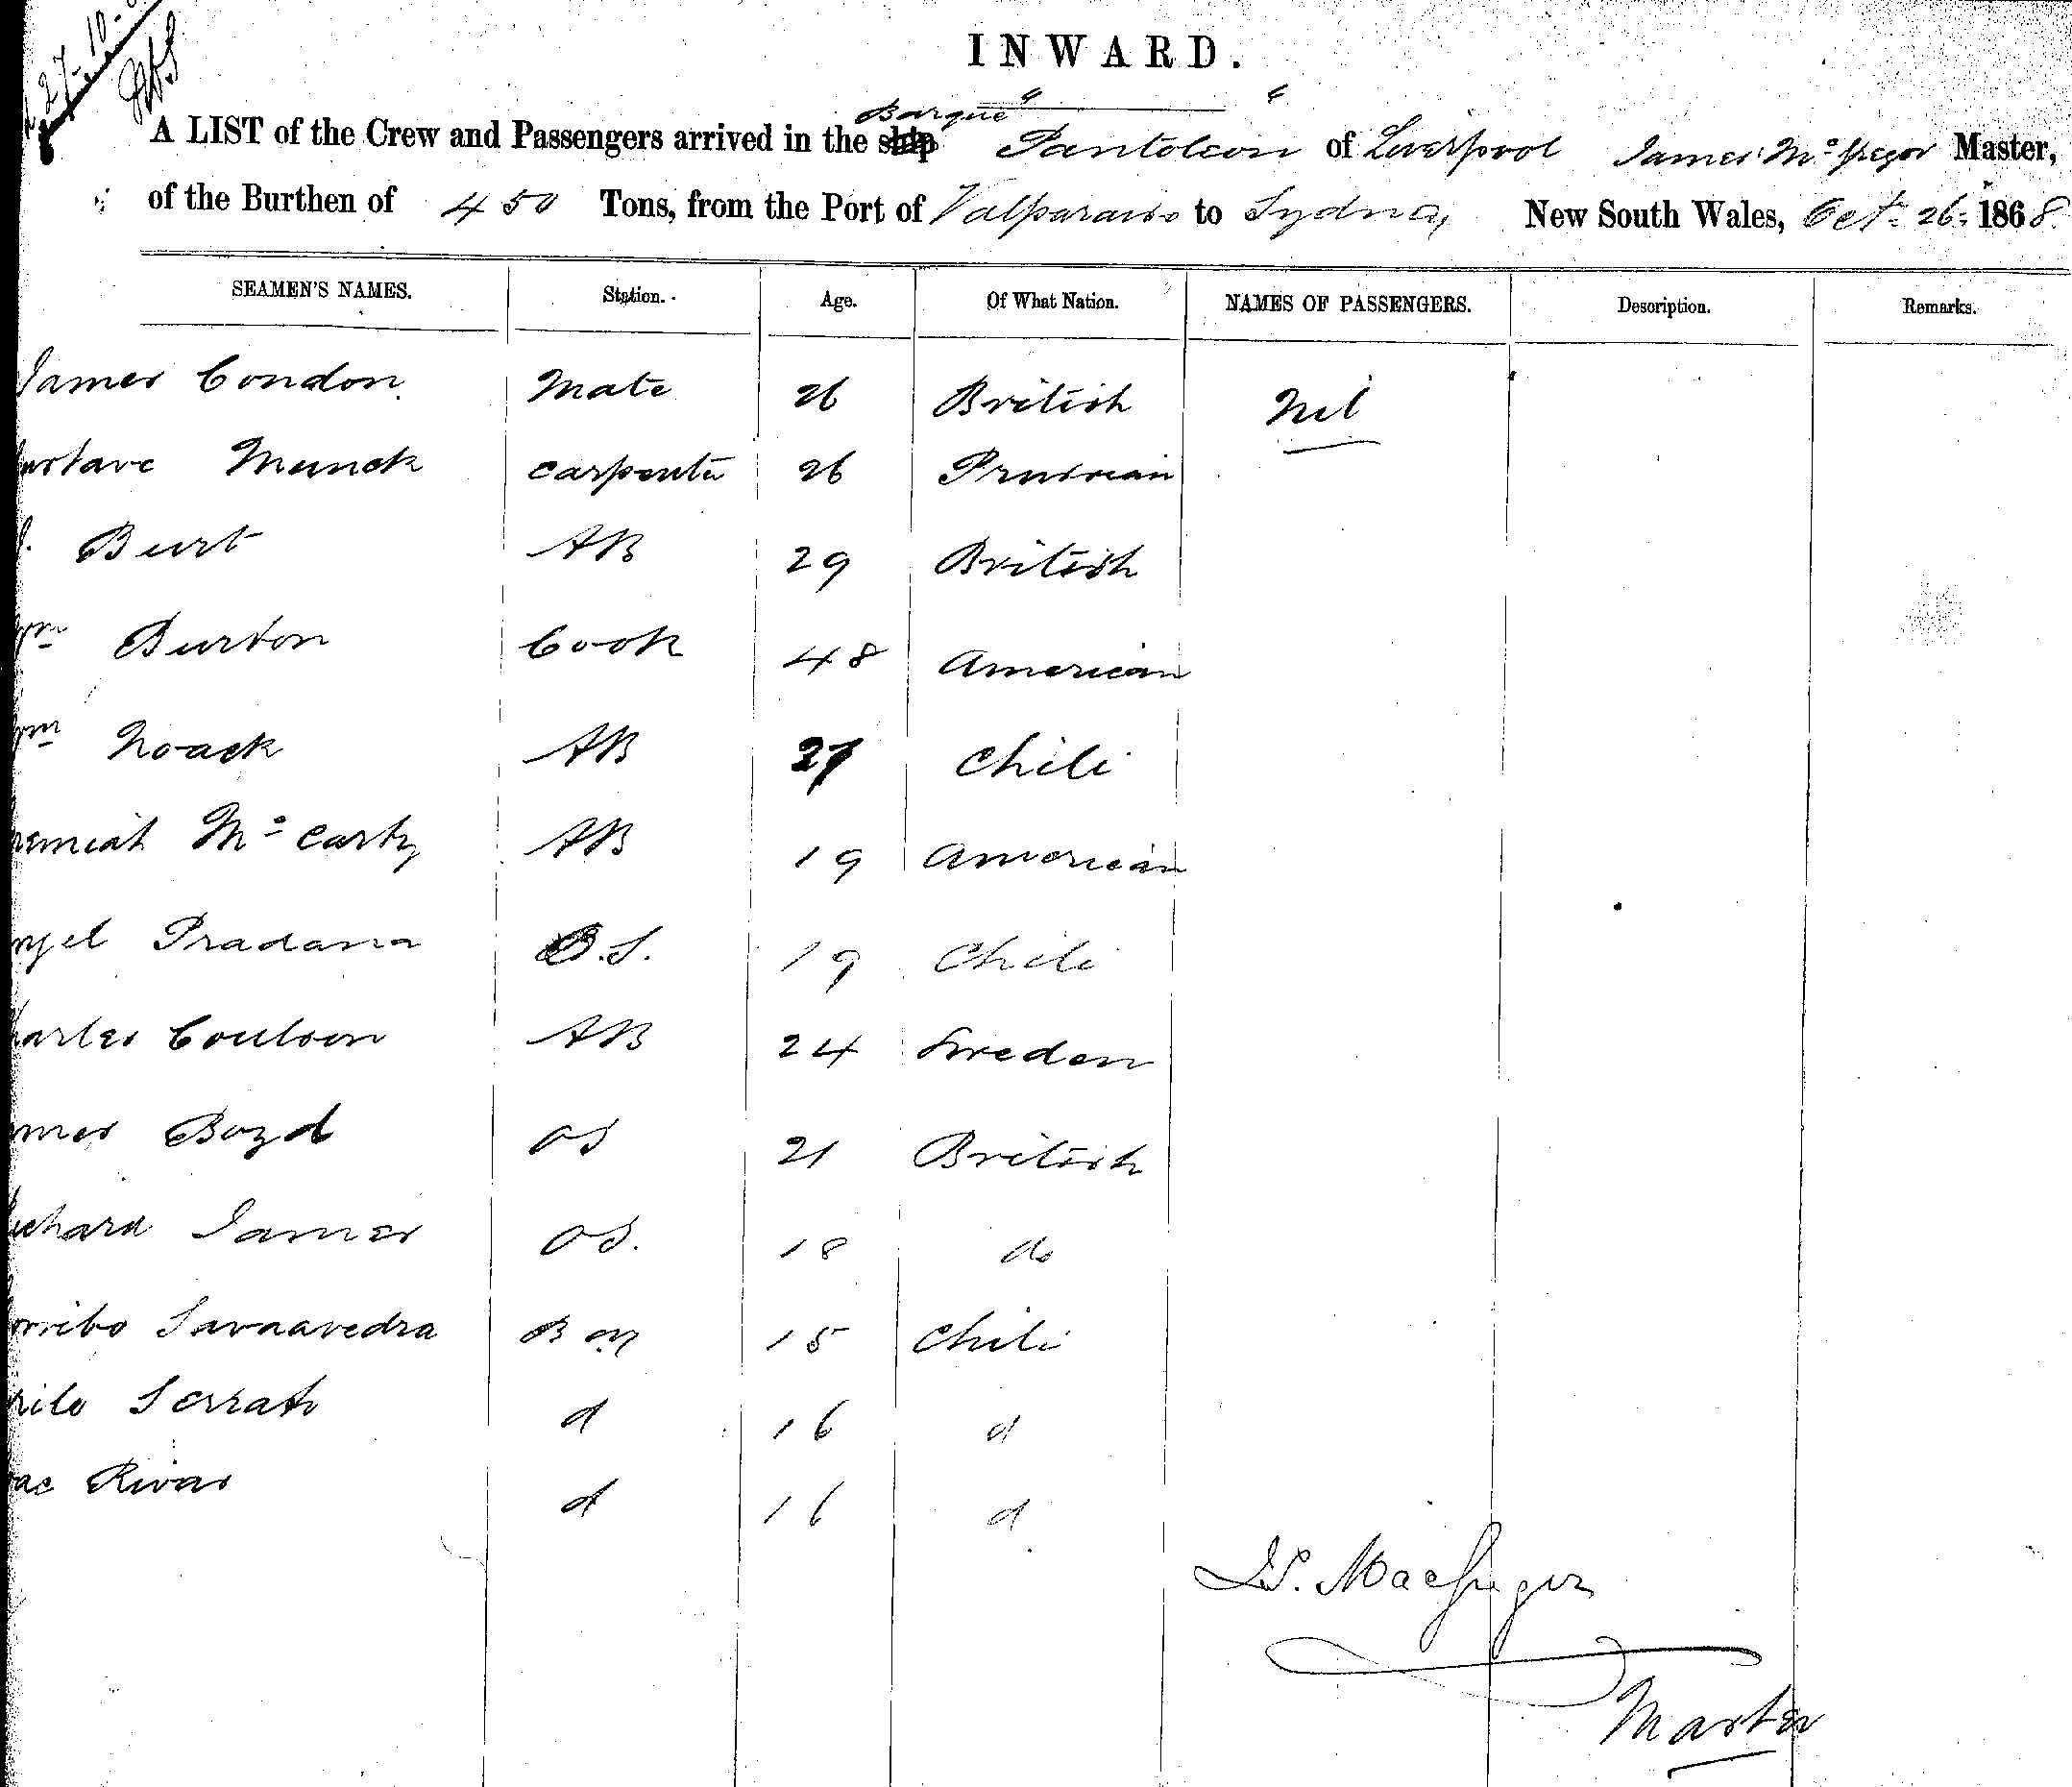 27-10-
INWARD.
A LIST of the Crew and Passengers arrived in the ship Barque Pantoleon of Liverpool James McGregor Master,
of the Burthen of 450 Tons, from the Port of Valparaiso to Sydney New South Wales, Oct. 26. 1868.
SEAMEN'S NAMES. Station. Age. Of What Nation. NAMES OF PASSENGERS. Description. Remarks.
James Condon. Mate 26 British Nil
ustave Munck carpenter 26 Prussian
Burt AB 29 British
Wm Burton Cook 48 American
Wm Noack AB 27 Chili
remiah Mc Carty AB 19 American
ngel Pradana O.S. 19 Chili
harles Coulson AB 24 Sweden
ames Boyd OS 21 British
ichard James OS. 18 do
Savaavedra Boy 15 Chili
Serrato d 16 d
Rivas d 16 d
Js. MacGregor
Master